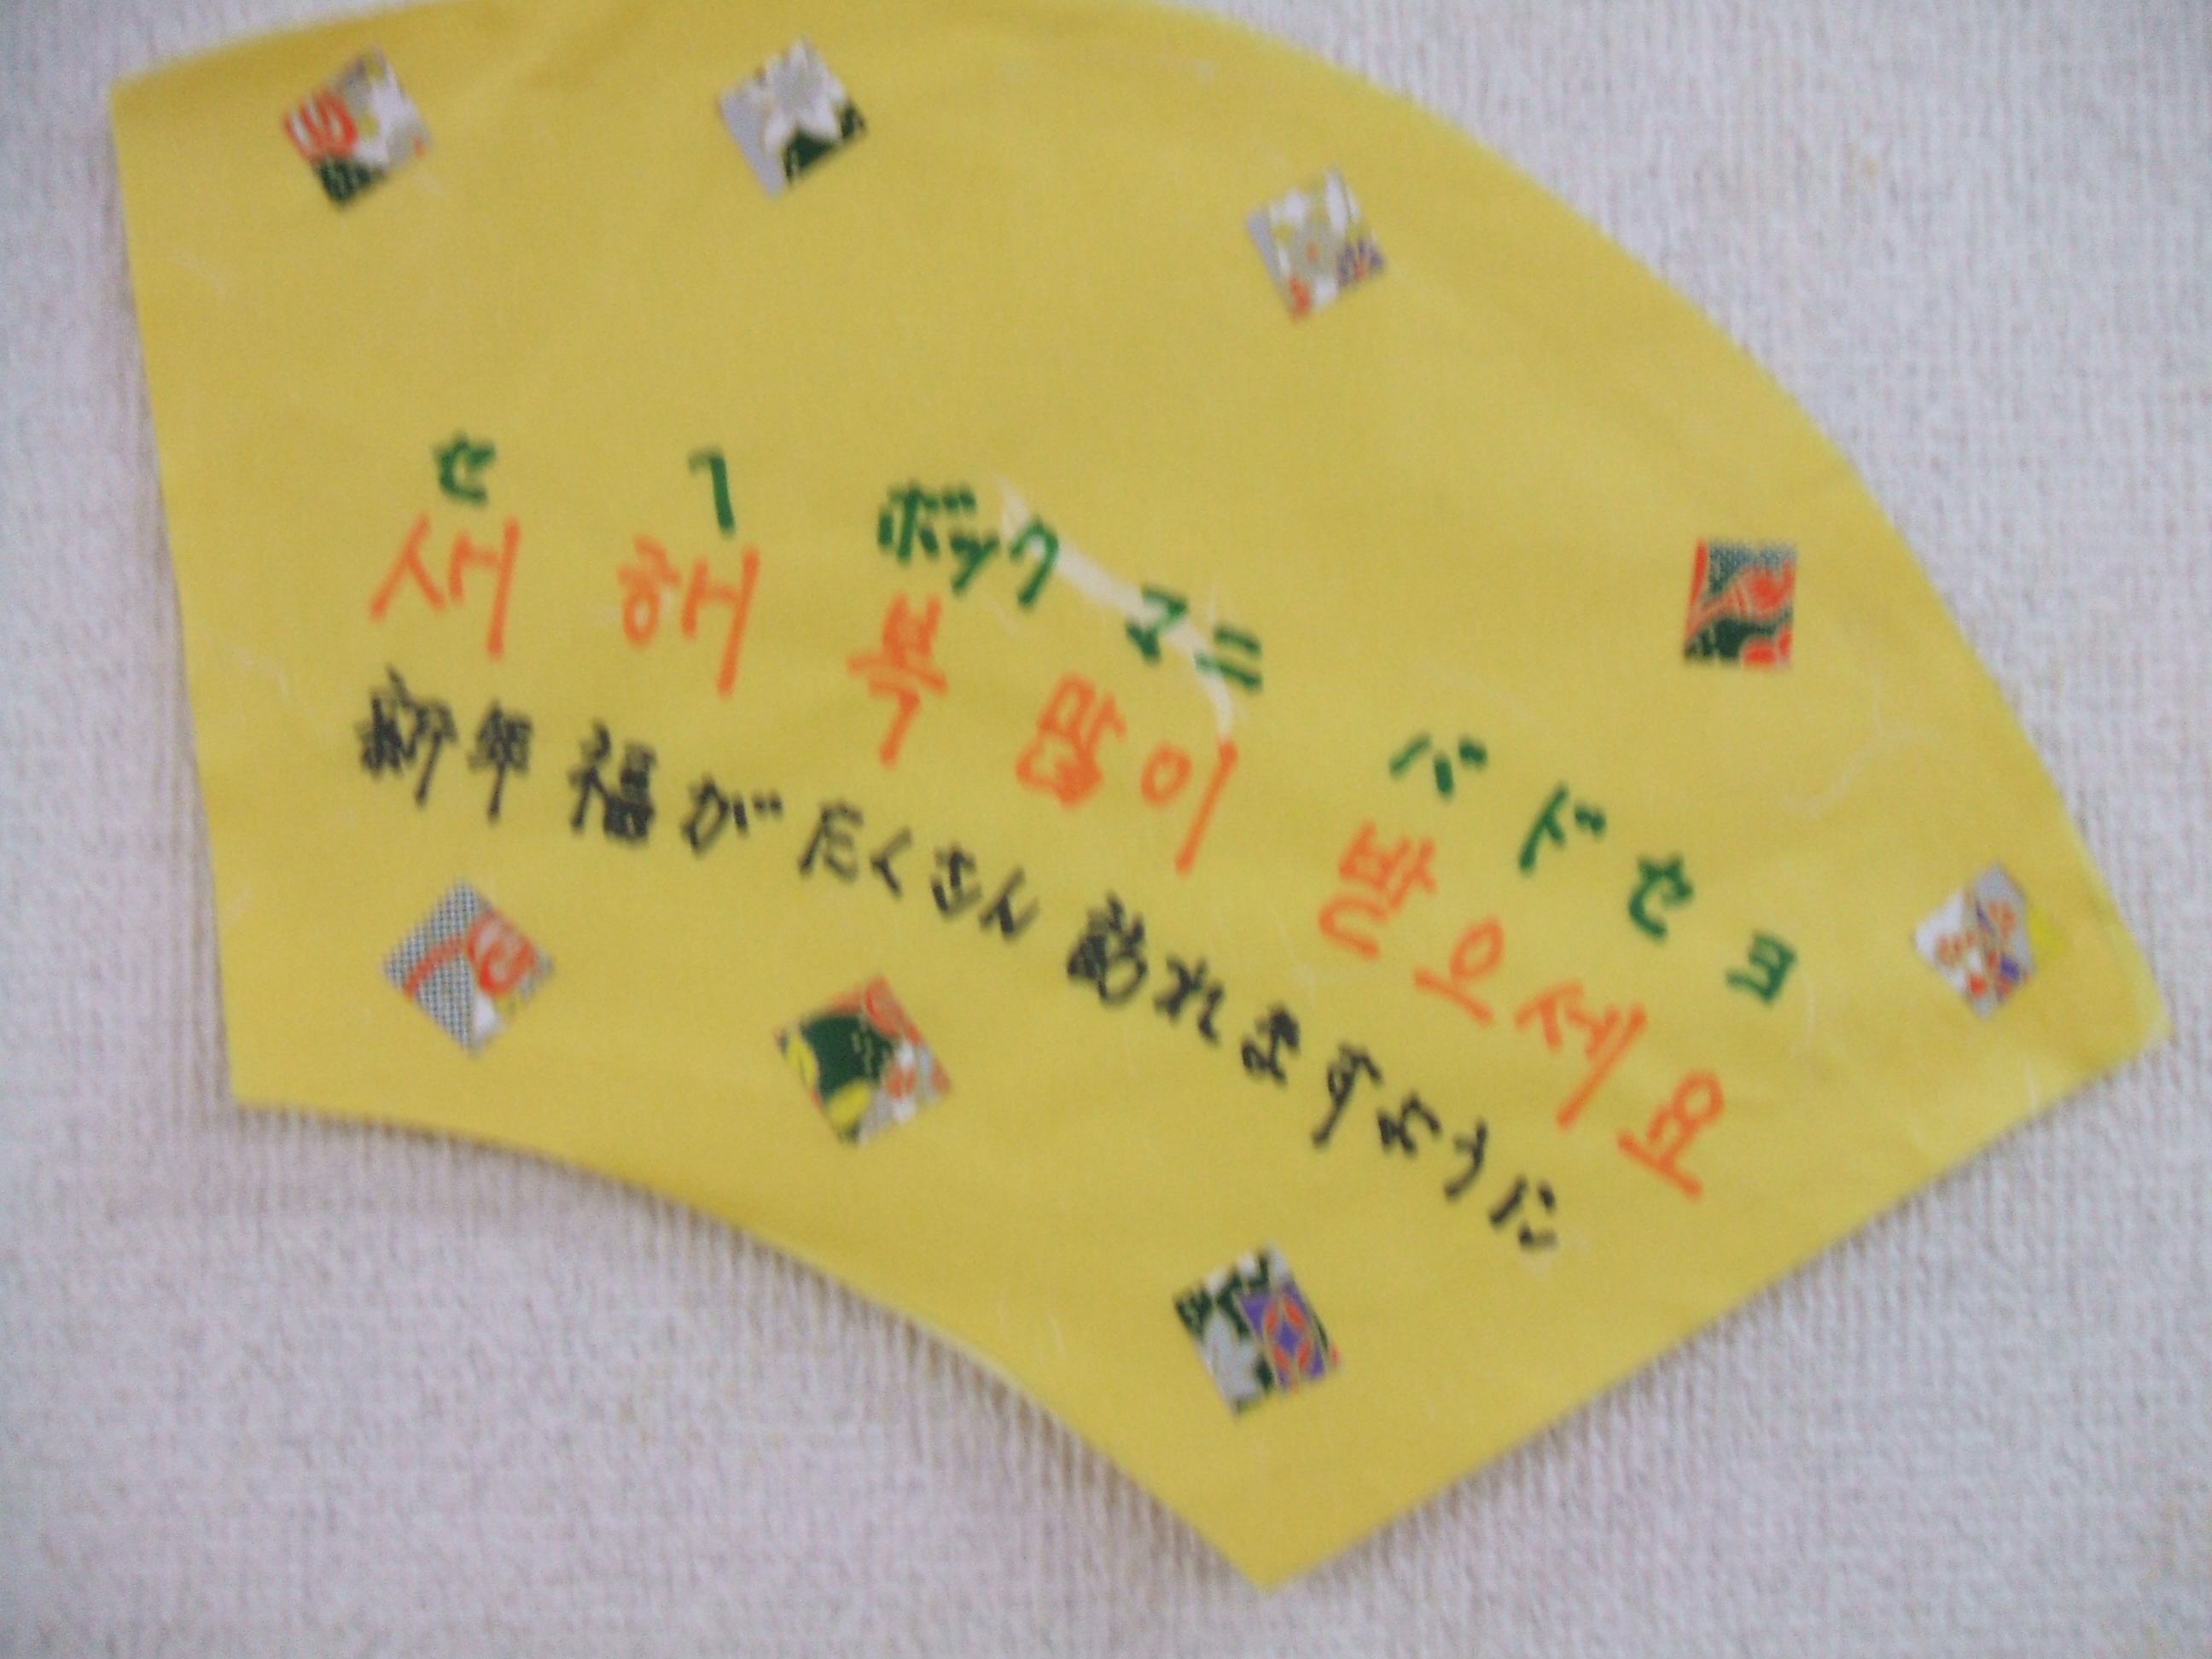 セー ボック マニ バドセヨ
새해 복 많이 받으세요
新年福がたくさん訪れますように